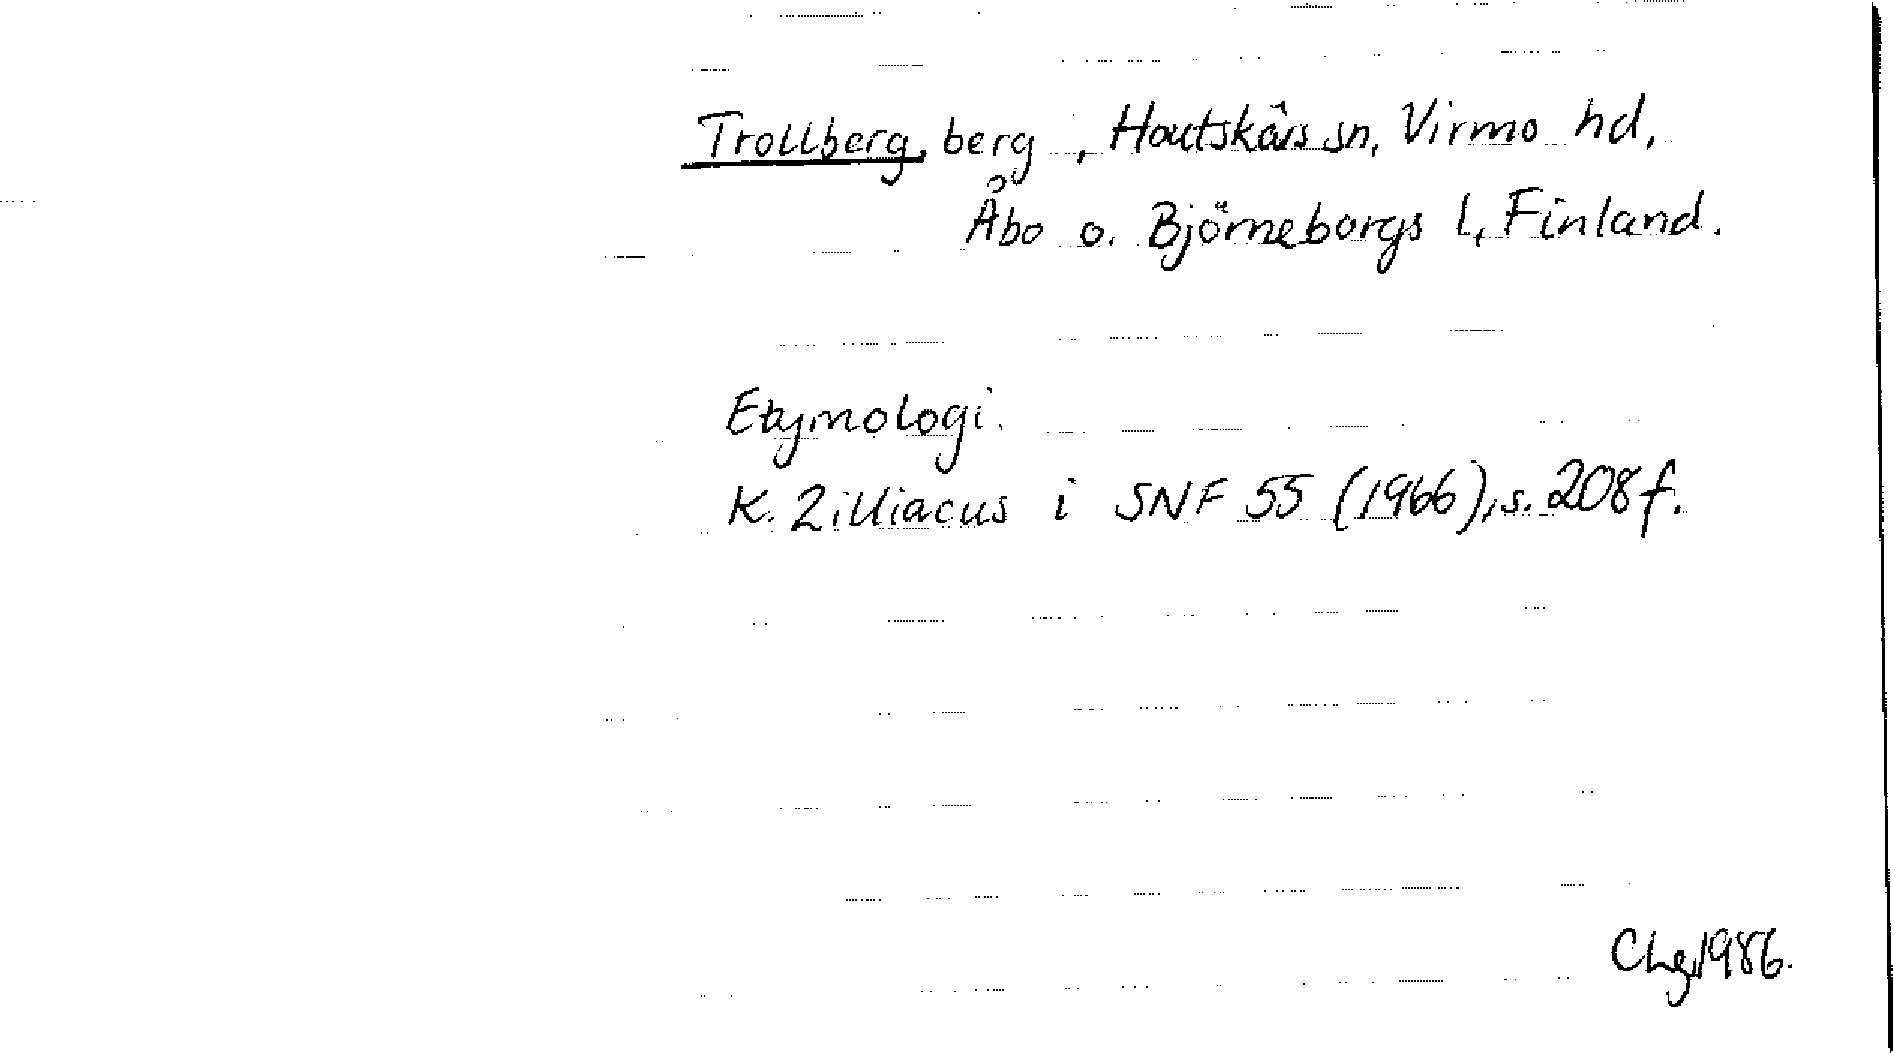 Trollberg, berg, Houtskärs sn, Virmo hd,
Åbo o. Björneborgs l, Finland.
Etymologi.
K. Zilliacus i SNF 55 (1966), s. 208 f.
Chg, 1986.